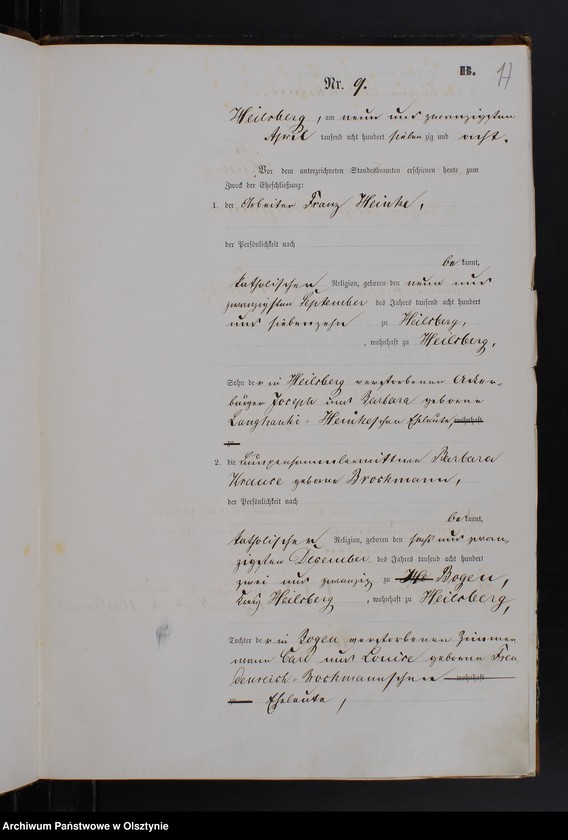 B.
17
Nr. 9.
Heilsberg, am neun und zwanzigsten
April tausend acht hundert sieben zig und acht.
Vor dem unterzeichneten Standesbeamten erschienen heute zum
Zweck der Eheschließung:
1. der Arbeiter Franz Heinke,
der Persönlichkeit nach
be kannt,
katholischer Religion, geboren den neun und
zwanzigsten September des Jahres tausend acht hundert
und siebenzehn zu Heilsberg,
, wohnhaft zu Heilsberg,
Sohn der in Heilsberg verstorbenen Acker-
bürger Joseph und Barbara geborene
Langhanki-Heinkeschen Eheleute, wohnhaft
zu
2. die Barbara
Krause geborene Brochmann,
der Persönlichkeit nach
be kannt,
katholischer Religion, geboren den sechs und zwan-
zigsten Dezember des Jahres tausend acht hundert
zwei und zwanzig zu Bogen,
Kreis Heilsberg, wohnhaft zu Heilsberg,
Tochter der in Bogen verstorbenen Zimmer
mann Carl und Louise geborene Freu
denreich-Brochmannschen wohnhaft
zu Eheleute,
Archiwum Państwowe w Olsztynie